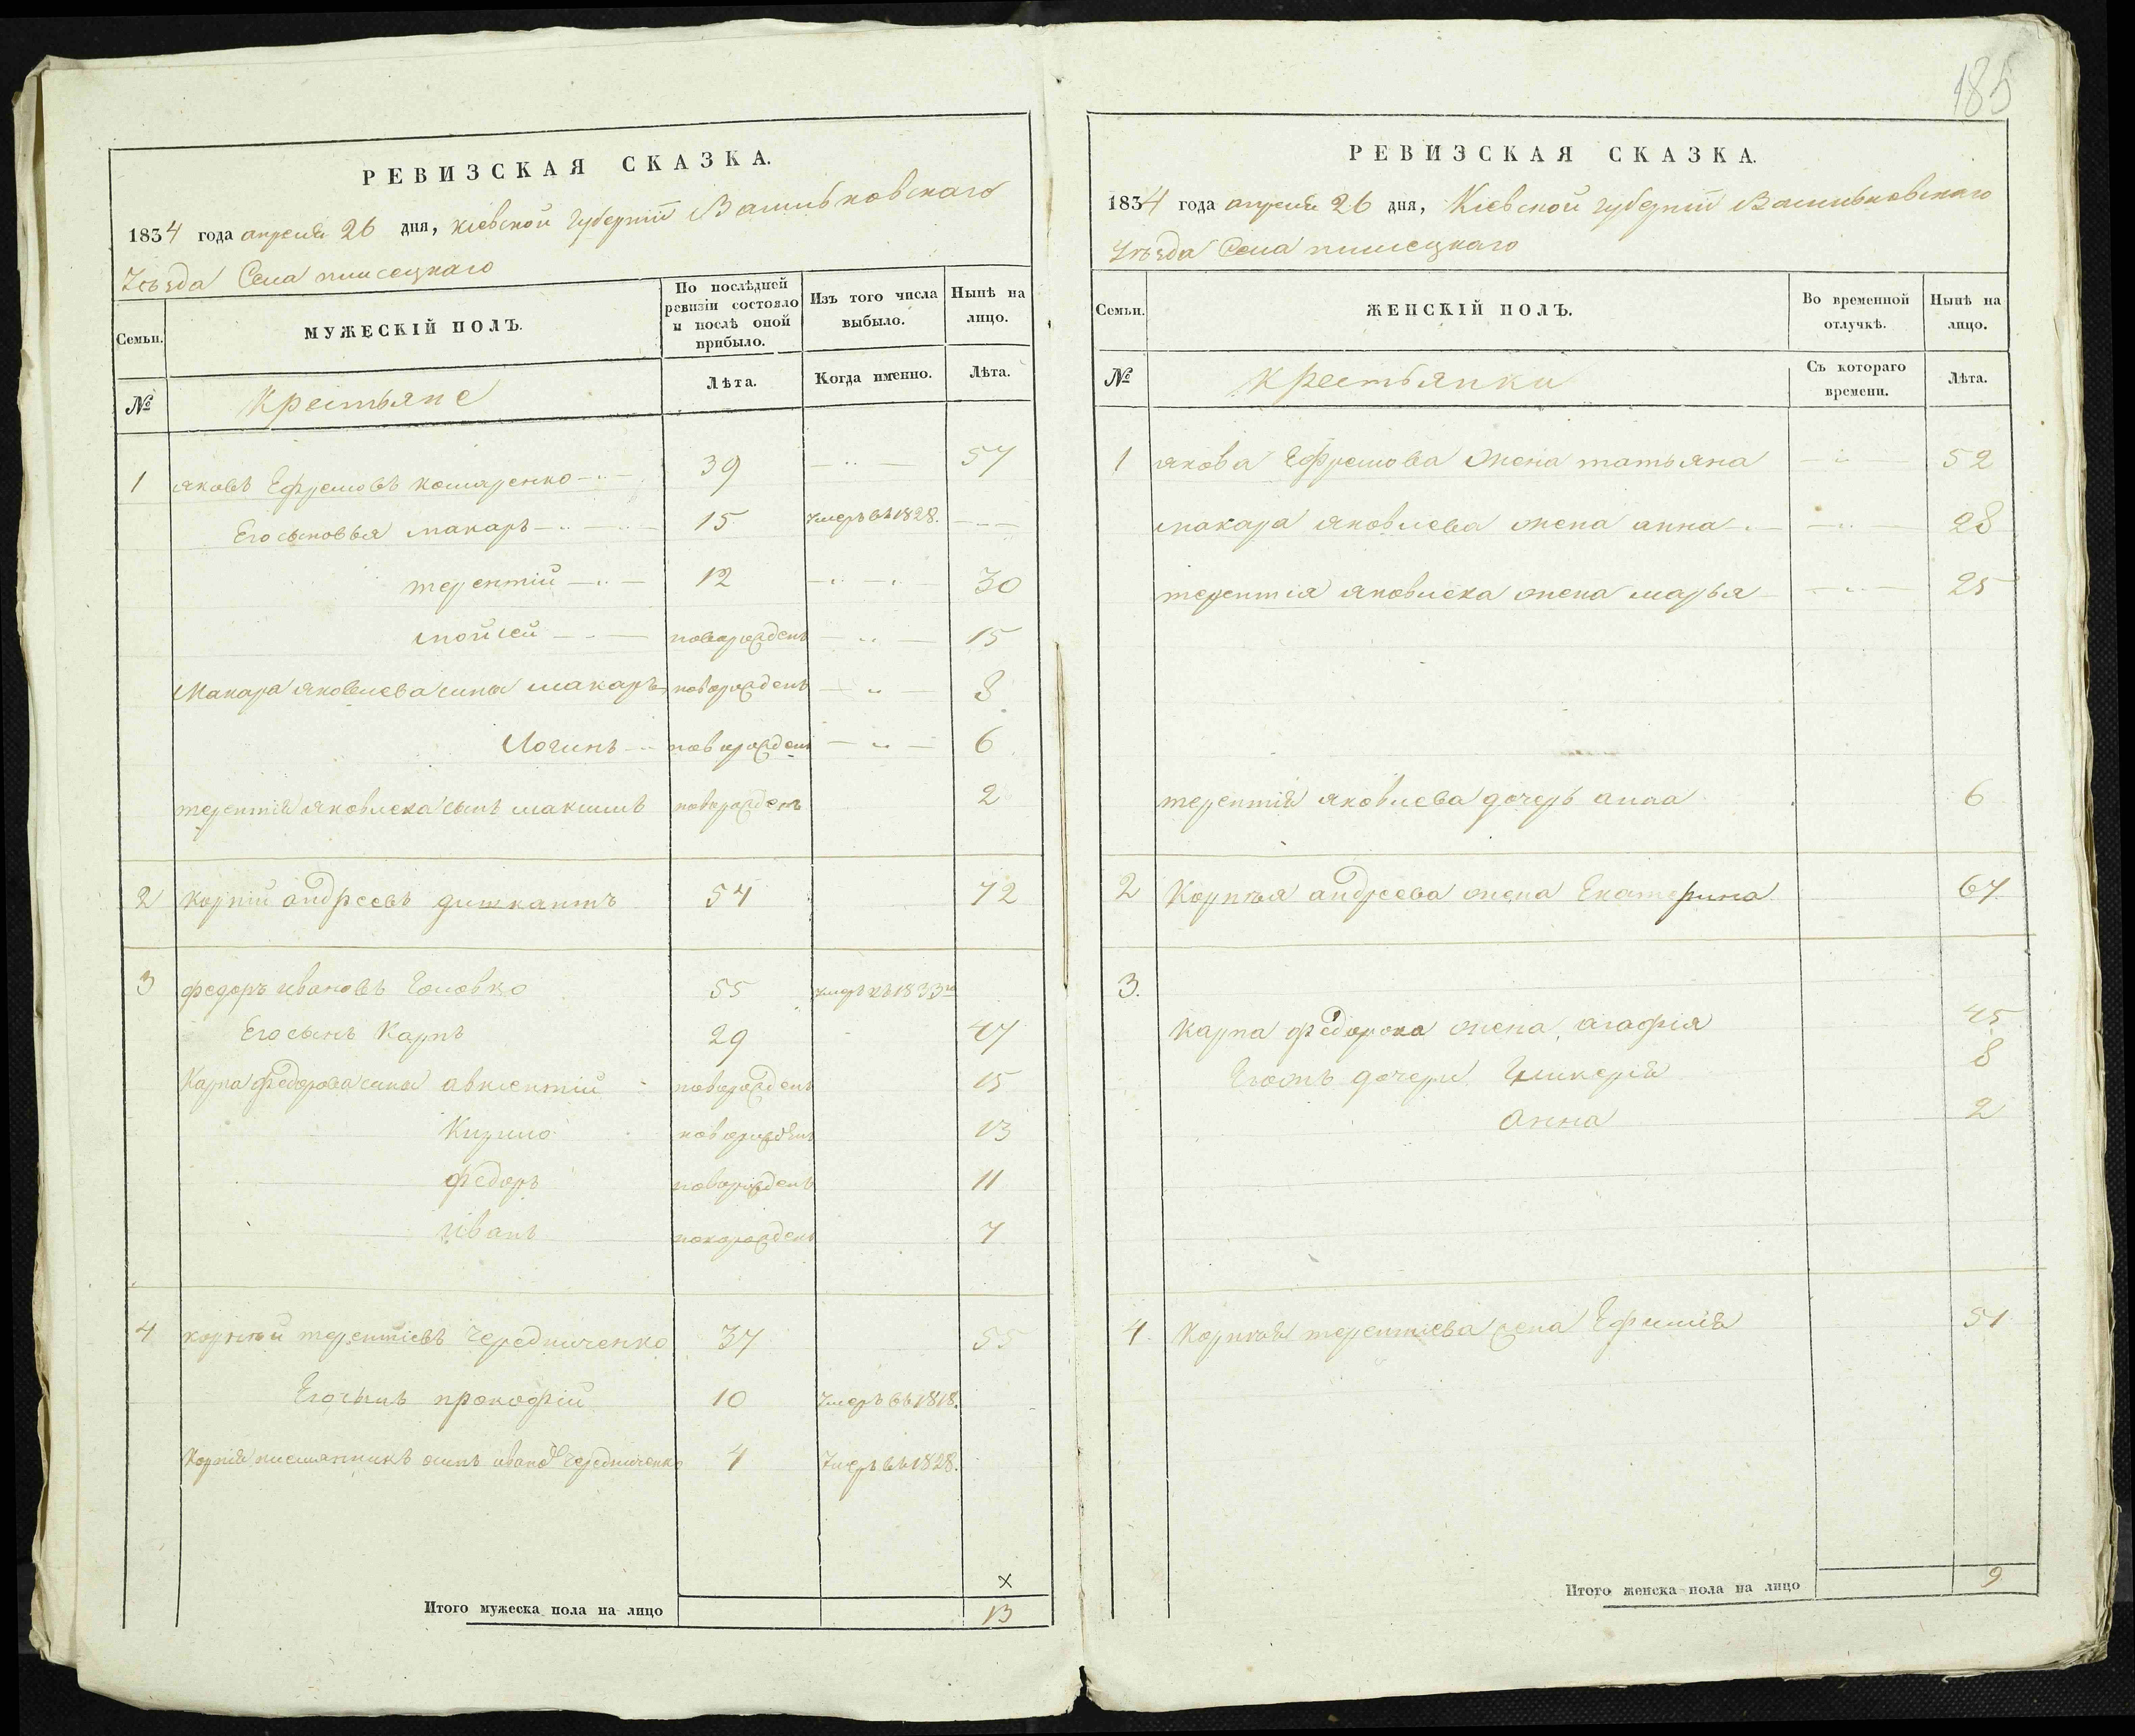 185
РЕВИЗСКАЯ СКАЗКА.
1834 года апреля 26 дня, Кіевской губерніи Васильковскаго
Уѣзда Села
Семьи.
МУЖЕСКІЙ ПОЛЪ.
По послѣдней ревизіи состояло и послѣ оной прибыло.
Изъ того числа выбыло.
Нынѣ на лицо.
№
Крестьяне
Лѣта.
Когда именно.
Лѣта.
1 яковъ Ефремовъ комаренко 39 57
Его сыновья макаръ 15 Умеръ въ 1828.
терентій 12 30
мойсей новорожденъ 15
Макара яковлева сины макаръ новорожденъ 8
Логинъ новорожденъ 6
терентія яковлева сынъ максимъ новорожденъ 2
2 корній андреевъ дишкантъ 54 72
3 федоръ ивановъ Головко 55 умеръ въ 1833го
Его сынъ Карпъ 29 47
Карпа Федорова сины авксентій новорожденъ 15
Кирило новорожденъ 13
федоръ новорожденъ 11
иванъ новорожденъ 7
4 корній терентіевъ Чередниченко 37 55
Его сынъ прокофій 10 Умеръ въ 1818.
Корнія племянникъ Чередниченко 4 Умеръ въ 1828.
×
Итого мужеска пола на лицо 13
РЕВИЗСКАЯ СКАЗКА.
1834 года апреля 26 дня, Кіевской губерніи Васильковскаго
Уѣзда Села
Семьи.
ЖЕНСКІЙ ПОЛЪ.
Во временной отлучкѣ.
Нынѣ на лицо.
№
Крестьянки
Съ котораго времени.
Лѣта.
1 якова Ефремова жена татьяна 52
макара яковлева жена анна 28
терентія яковлева жена марья 25
терентія яковлева дочерь анна 6
2 Корнѣя андреева жена Екатерина 67
3.
Карпа федорова жена агафія 45
Его дочери Гликерія 8
Анна 2
4. Корнѣя терентіева жена Ефимія 51
Итого женска пола на лицо 9